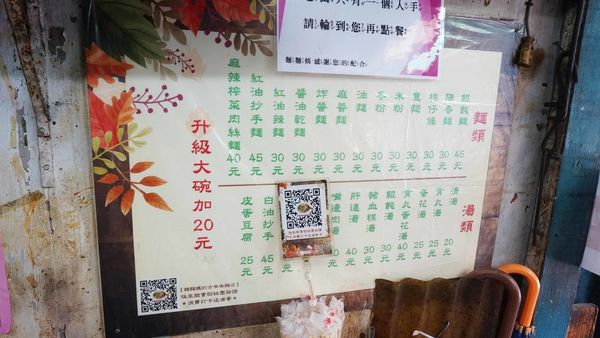 闆只有一個人手
請輪到您再點餐
麵麵娛感謝您的配合
麵類
餛飩麵 45元
陽春麵 30元
粿仔條 30元
意麵 30元
米粉 30元
冬粉 30元
油麵 30元
麻醬麵 30元
炸醬麵 30元
醬油乾麵 30元
紅辣麵 30元
紅油抄手麵 45元
麻辣榨菜肉絲麵 40元
升級大碗加20元
湯類
清湯 20元
貢丸湯 25元
蛋花湯 25元
貢丸蛋花湯 40元
餛飩湯 30元
豬血糕湯 35元
肝連湯 50元
嘴邊肉湯 40元
30元
白油抄手 45元
皮蛋豆腐 25元